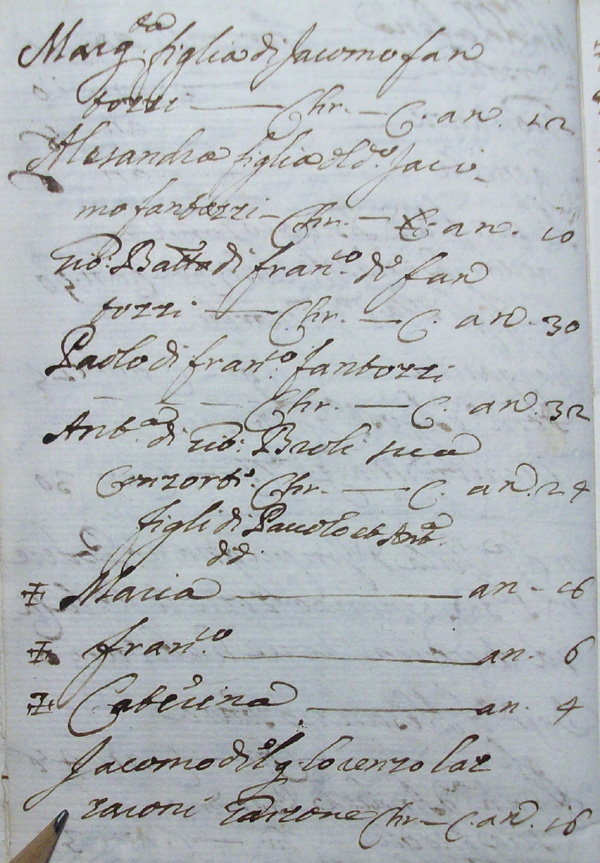 Marg.ta figlia di Jacomo fan
tozzi — Chr. — C. an. 12
Alesandra figlia del d.o Jaco-
mo fantozzi — Chr. — C an. 10
Gio: Batta di fran.co di fan
tozzi — Chr. — C. an. 30
Paolo di fran.co fantozzi
— Chr. — C. an. 32
Ant.a di Gio: Broli sua
Conzorte Chr. — C. an. 24
figli di Pauolo et Ant.a
dd.
Maria — an - 16
fran.co — an. 6
Caterina — an. 4
Jacomo del q. Lorenzo laz
zaroni Garzone Chr — C. an. 16